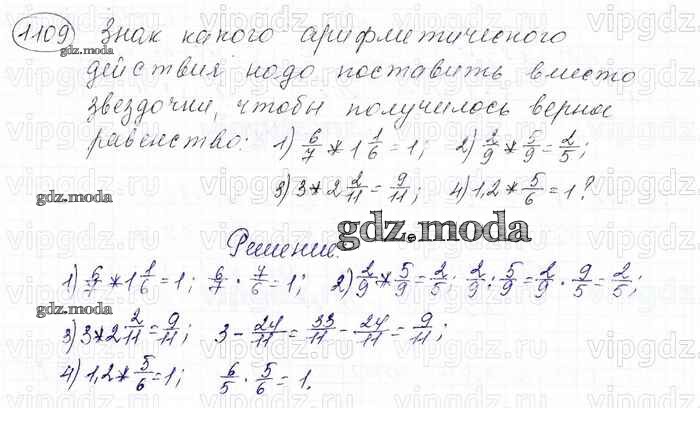 1109 Знак какого арифметического
действия надо поставить вместо
звездочки, чтобы получилось верное
равенство: 1) 6/7 * 1 1/6 = 1; 2) 2/9 * 5/9 = 2/5;
3) 3 * 2 2/11 = 9/11; 4) 1,2 * 5/6 = 1?
gdz.moda
Решение.
1) 6/7 * 1 1/6 = 1; 6/7 · 7/6 = 1; 2) 2/9 * 5/9 = 2/5; 2/9 : 5/9 = 2/9 · 9/5 = 2/5;
3) 3 * 2 2/11 = 9/11; 3 - 24/11 = 33/11 - 24/11 = 9/11;
4) 1,2 * 5/6 = 1; 6/5 · 5/6 = 1.